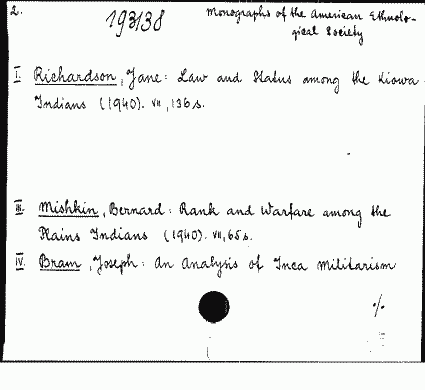 2.
193138
Monographs of the American Ethnolo-
gical Society
I. Richardson, Jane: Law and Status among the Kiowa
Indians (1940). VII, 136 s.
III. Mishkin, Bernard: Rank and Warfare among the
Plains Indians (1940). VII, 65 s.
IV. Bram, Joseph: An Analysis of Inca Militarism
%